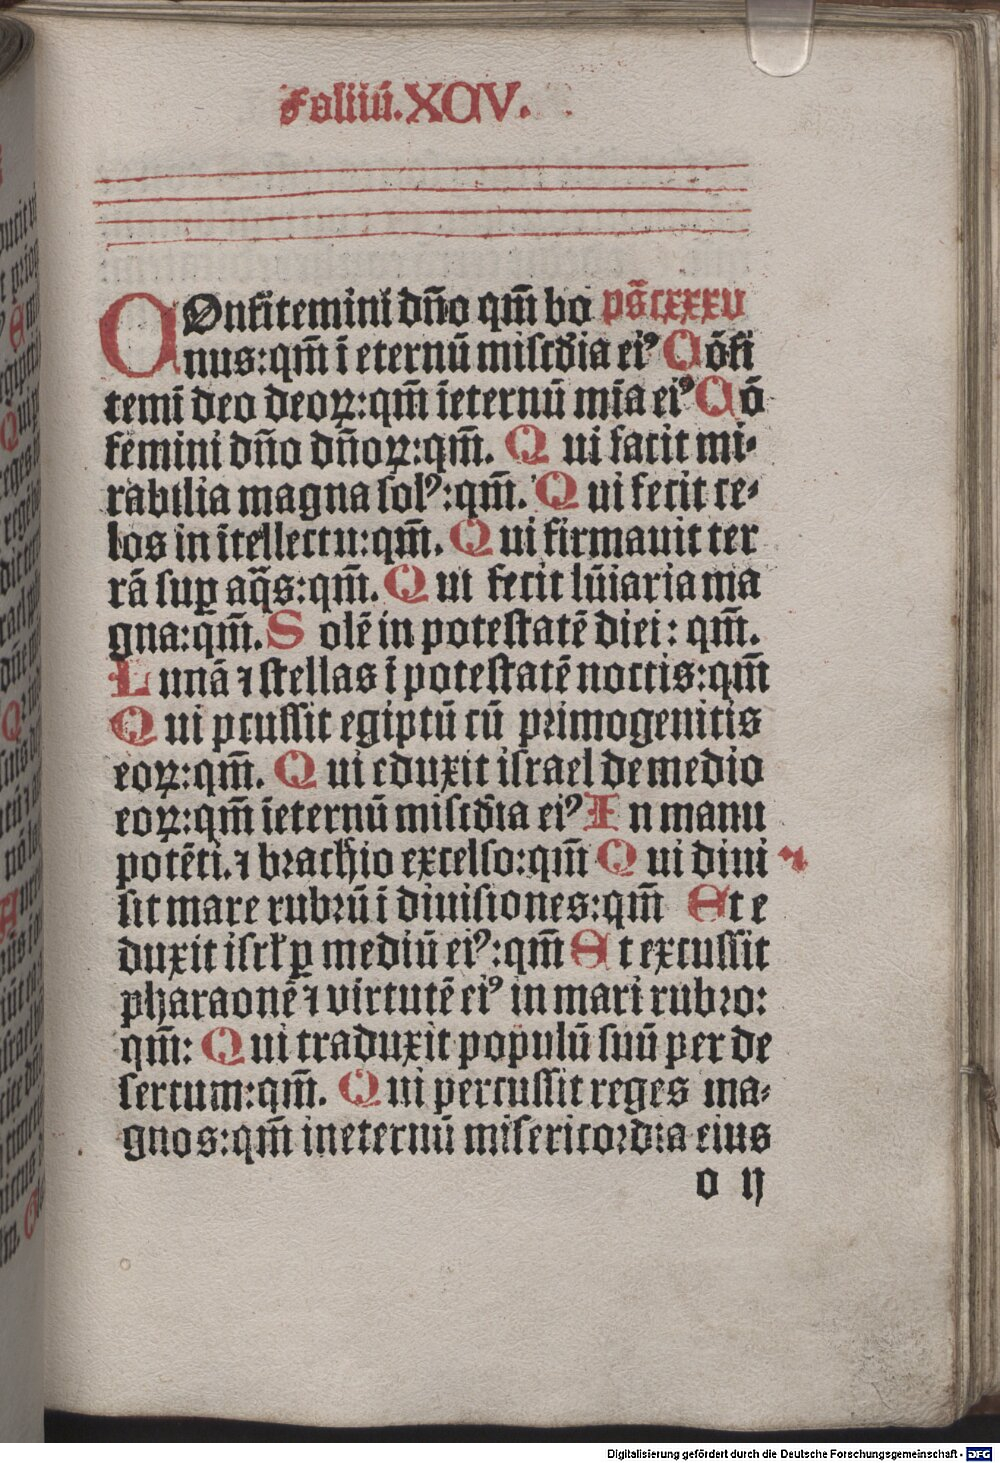 Foliiū.XCIV.
COnfitemini dn̄o qm̄ bo ps̄cxxxv
nus:qm̄ ī eternū miscd̄ia eiꝰ Cōfi
temī deo deoꝝ:qm̄ īeternū mīa eiꝰ Cō
femini dn̄o dn̄oꝝ:qm̄. Qui facit mi-
rabilia magna solꝰ:qm̄. Qui fecit ce-
los in ītellectu:qm̄. Qui firmauit ter
rā suꝑ aq̄s:qm̄. Qui fecit lūiaria ma
gna:qm̄. Solē in potestatē diei: qm̄.
Lunā ⁊ stellas ī potestatē noctis:qm̄
Qui ꝑcussit egiptū cū primogenitis
eoꝝ:qm̄. Qui eduxit israel de medio
eoꝝ:qm̄ īeternū miscd̄ia eiꝰ In manu
potēti.⁊ brachio excelso:qm̄ Qui diui
sit mare rubrū ī diuisiones:qm̄ Et e
duxit isrl̄ ꝑ mediū eiꝰ:qm̄ Et excussit
pharaonē ⁊ virtutē eiꝰ in mari rubro:
qm̄: Qui traduxit populū suū per de
sertum:qm̄. Qui percussit reges ma-
gnos:qm̄ ineternū misericordia eius
o ij
Digitalisierung gefördert durch die Deutsche Forschungsgemeinschaft - DFG